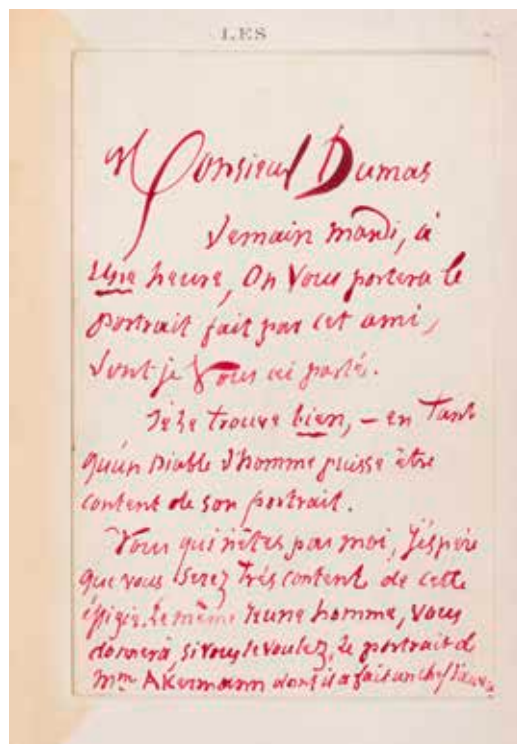 LES
Monsieur Dumas
Demain mardi, à
une heure, On Vous portera le
portrait fait par cet ami,
dont je Vous ai parlé.
Je le trouve bien, – en Tant
qu'un Diable d'homme puisse être
content de son portrait.
Vous qui n'êtes pas moi, J'éspère
que vous serez Très content de cette
éfigie. Le même Jeune homme, vous
donnera, si vous le voulez, le portrait de
Mme AKermann dont il a fait un chef d'œuvre